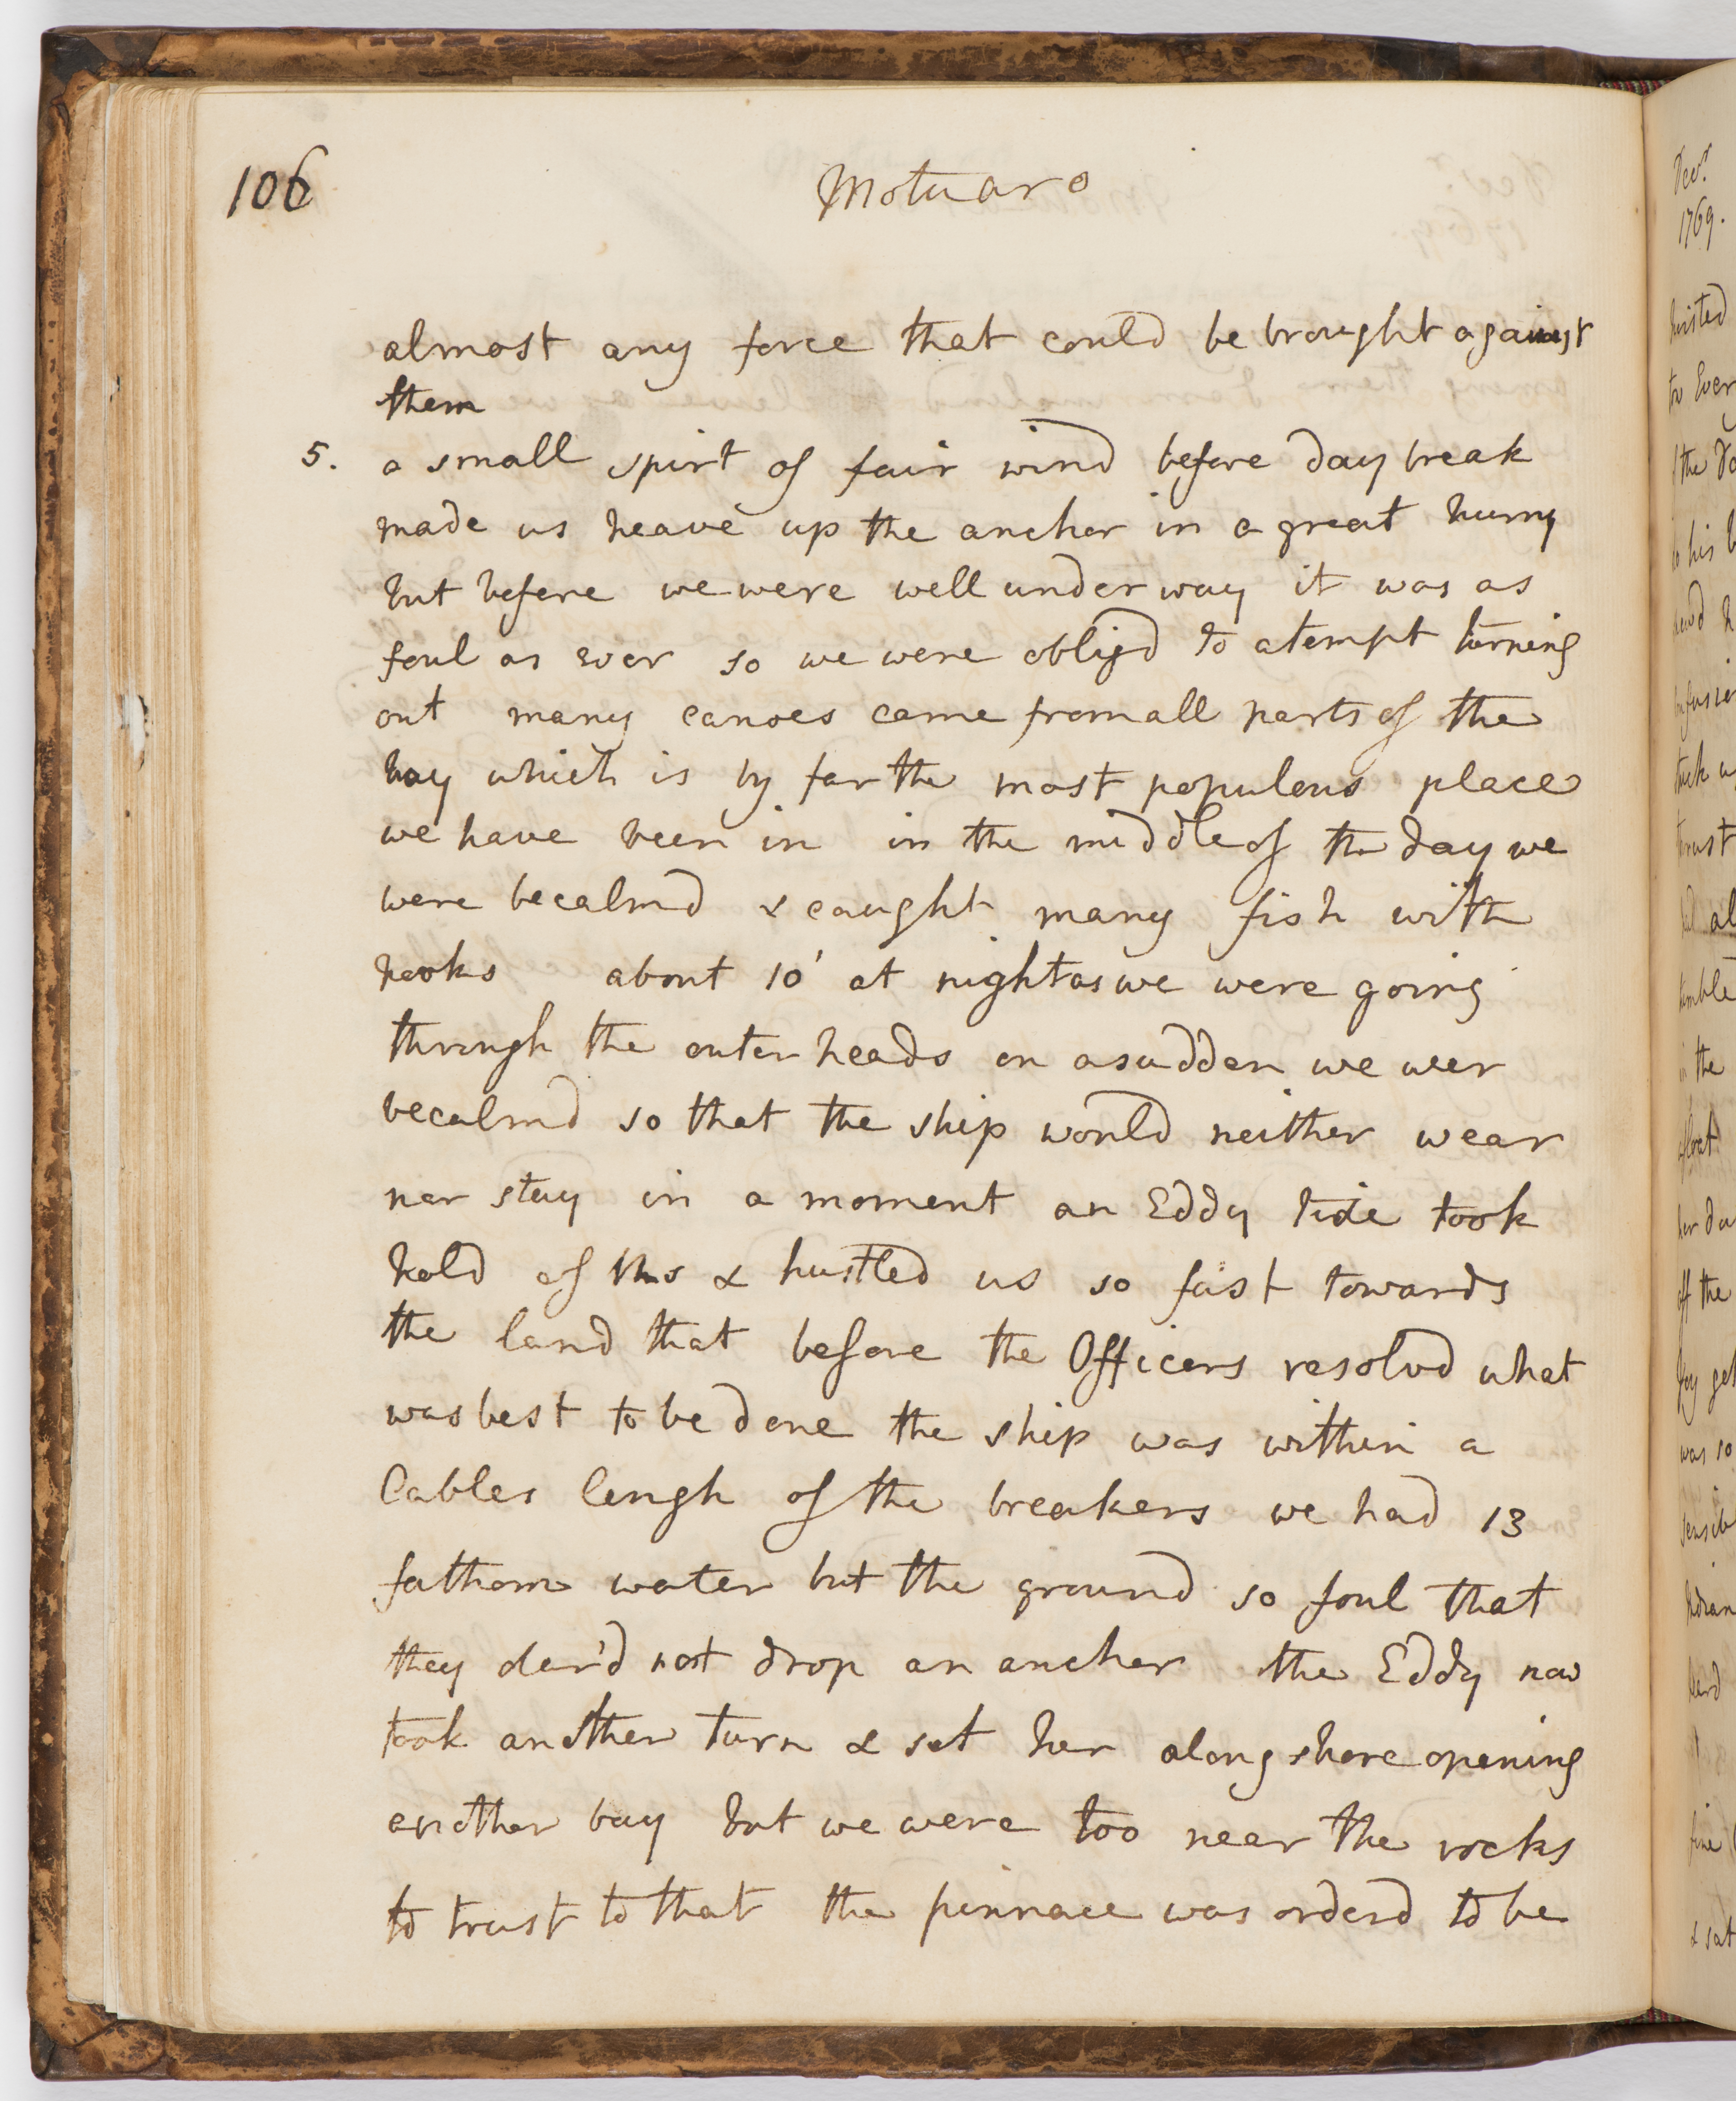 106
Motuaro
almost any force that could be brought against
them
5. a small spirt of fair wind before day break
made us heave up the anchor in a great hurry
but before we were well under way it was as
foul as ever so we were obligd to atempt turning
out many canoes came from all parts of the
bay which is by far the most populous place
we have been in in the middle of the day we
were becalmd & caught many fish with
hooks about 10' at night as we were going
through the outer heads on a sudden we wer
becalmd so that the ship would neither wear
nor stay in a moment an Eddy tide took
hold of us & hustled us so fast towards
the land that before the Officers resolvd what
was best to be done the ship was within a
Cables lengh of the breakers we had 13
fathom water but the ground so foul that
they dar'd not drop an anchor the Eddy now
took another turn & set her along shore opening
another bay but we were too near the rocks
to trust to that the pinnace was orderd to be
Decr.
1769.